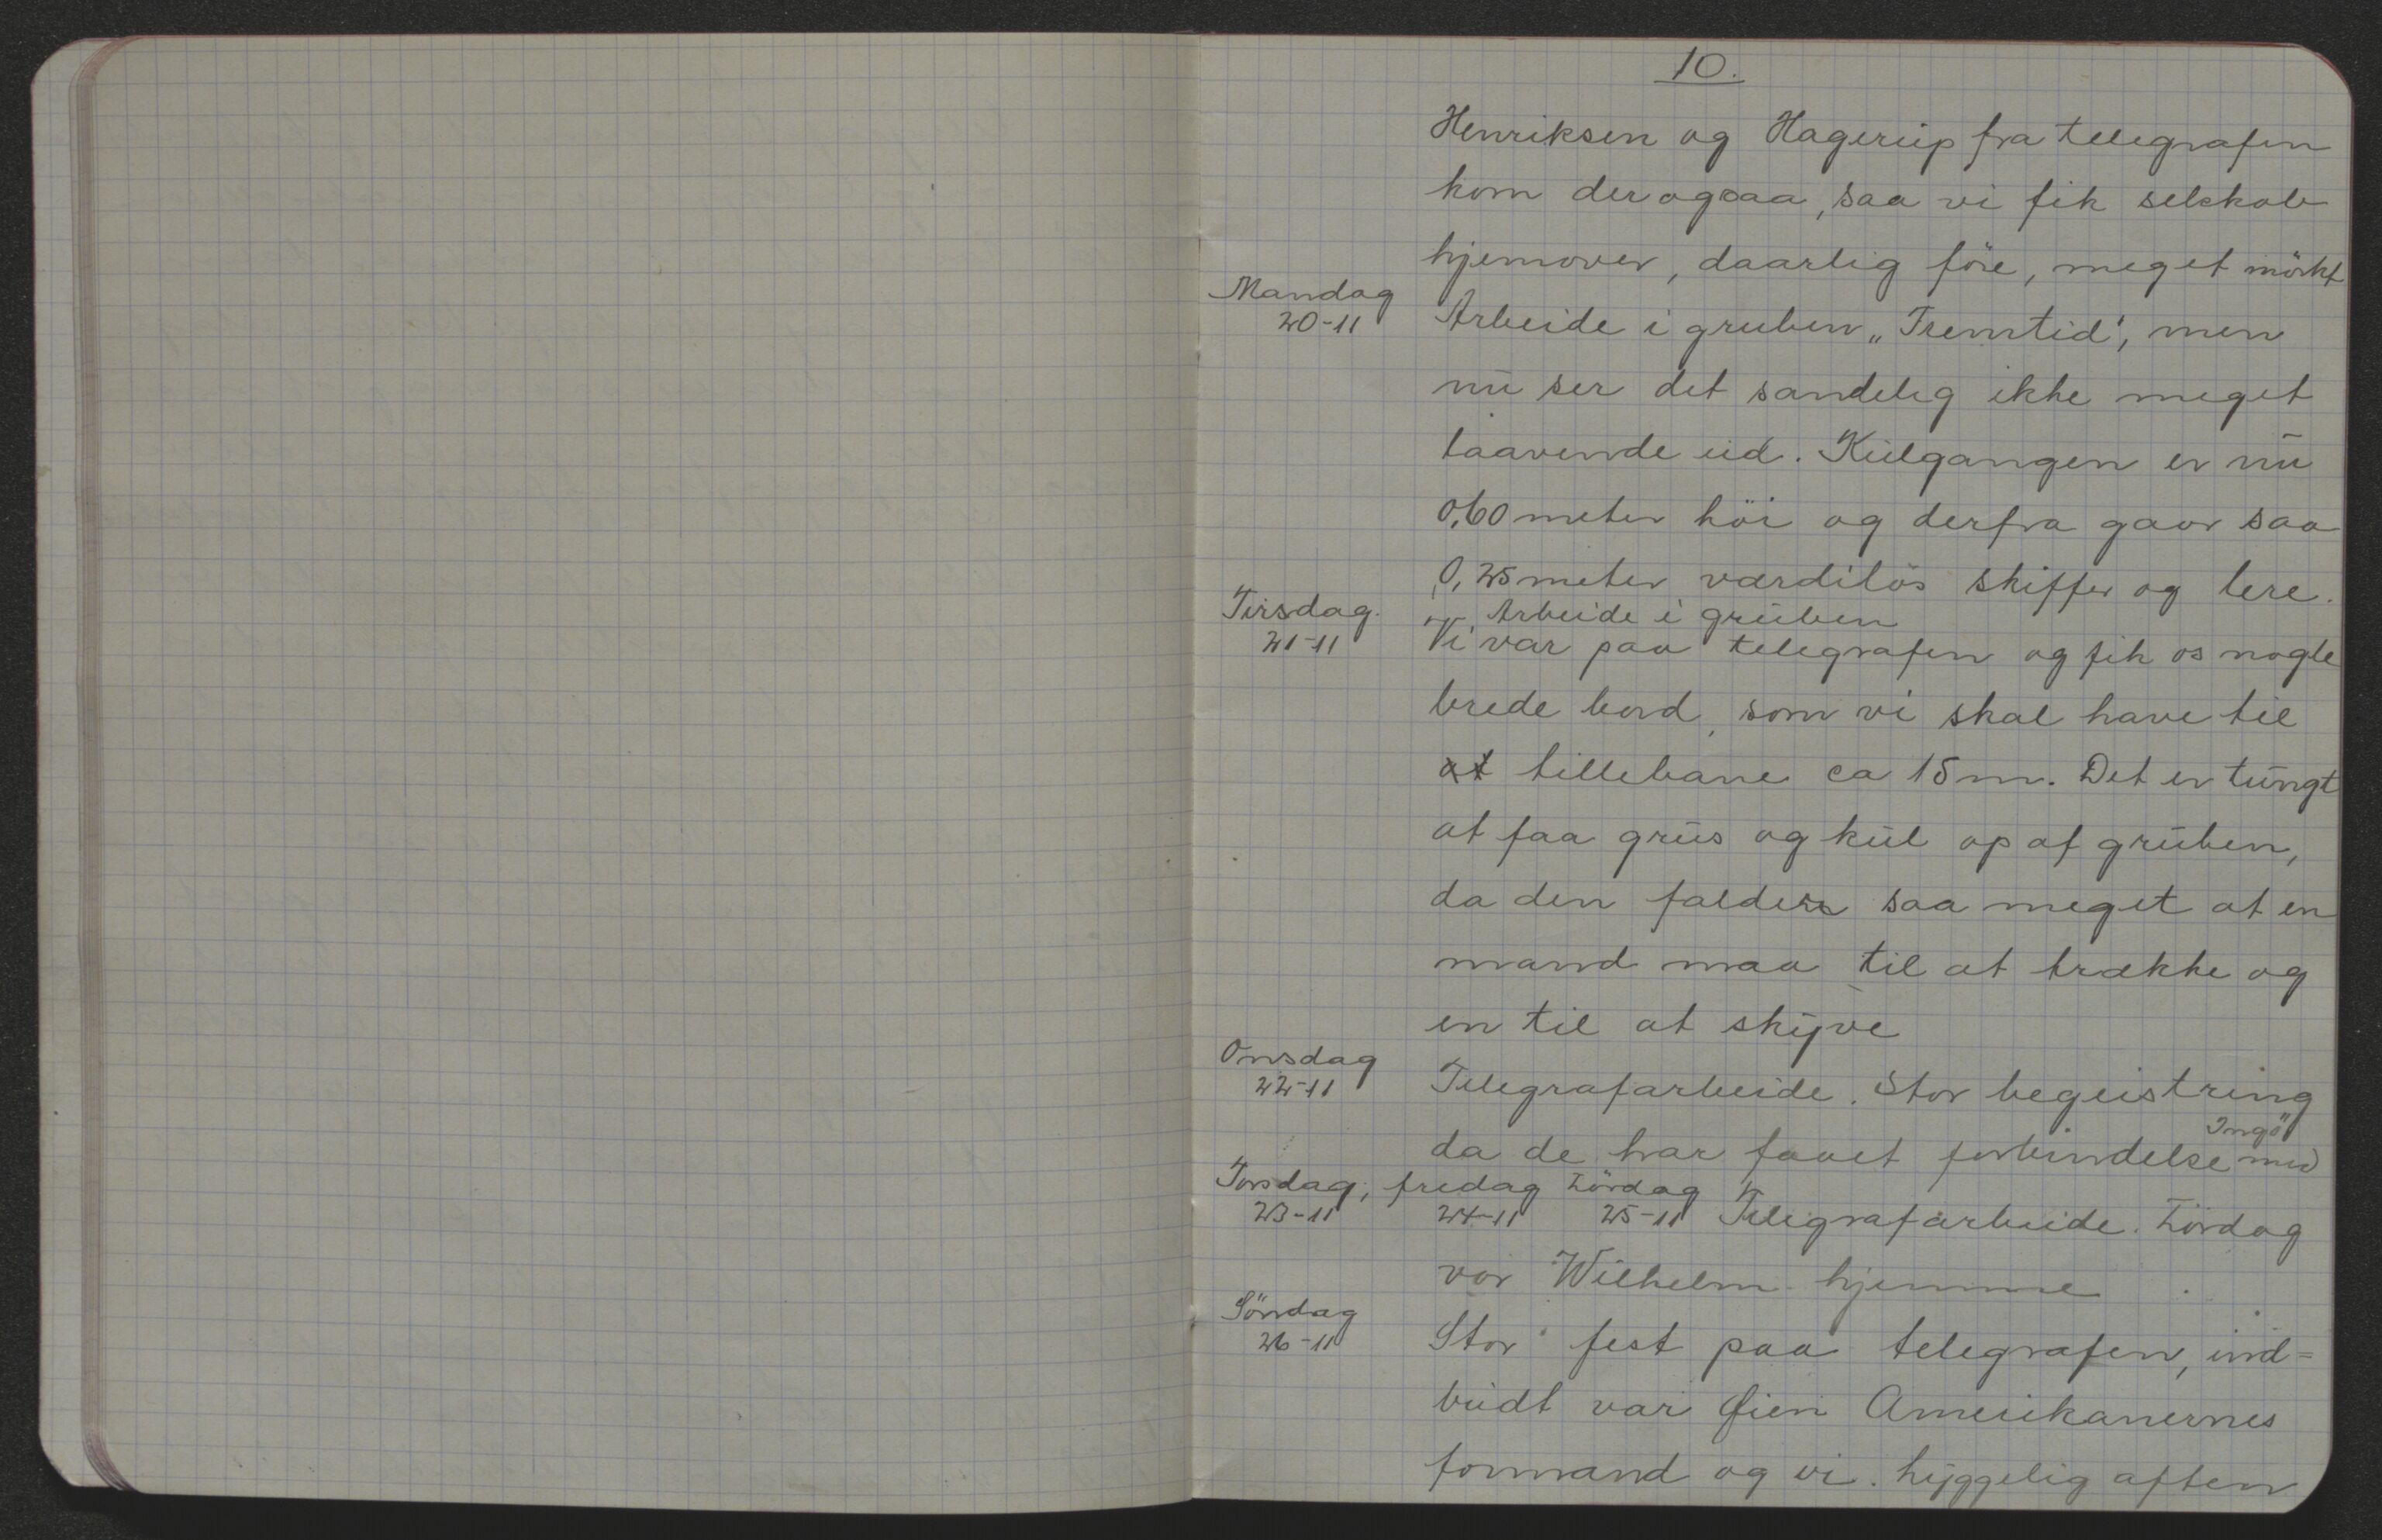 10.
Henriksen og Hagerup fra telegrafen
kom derogsaa, saa vi fik selskab
hjemover, daarlig före, meget mörkt
Mandag
20-11
Arbeide i gruben „Fremtid", men
nu ser det sandelig ikke meget
laavende ud. Kulgangen er nu
0,60 meter höi og derfra gaar saa
0,25 meter værdilös skiffer og lere.
Tirsdag.
21-11
Arbeide i gruben
Vi var paa telegrafen og fik os nogle
brede bord, som vi skal have til
at tillebane ca 15 m. Det er tungt
at faa grus og kul op af gruben,
da den falder saa meget at en
mand maa til at trække og
en til at skyve
Onsdag
22-11
Telegrafarbeide. Stor begeistring
da de har faaet forbindelse med
Ingö
Torsdag, fredag Lördag
23-11 24-11 25-11 Telegrafarbeide. Lördag
var Wilhelm hjemme.
Söndag
26-11
Stor fest paa telegrafen, ind=
budt var Øien Amerikanernes
formand og vi. hyggelig aften